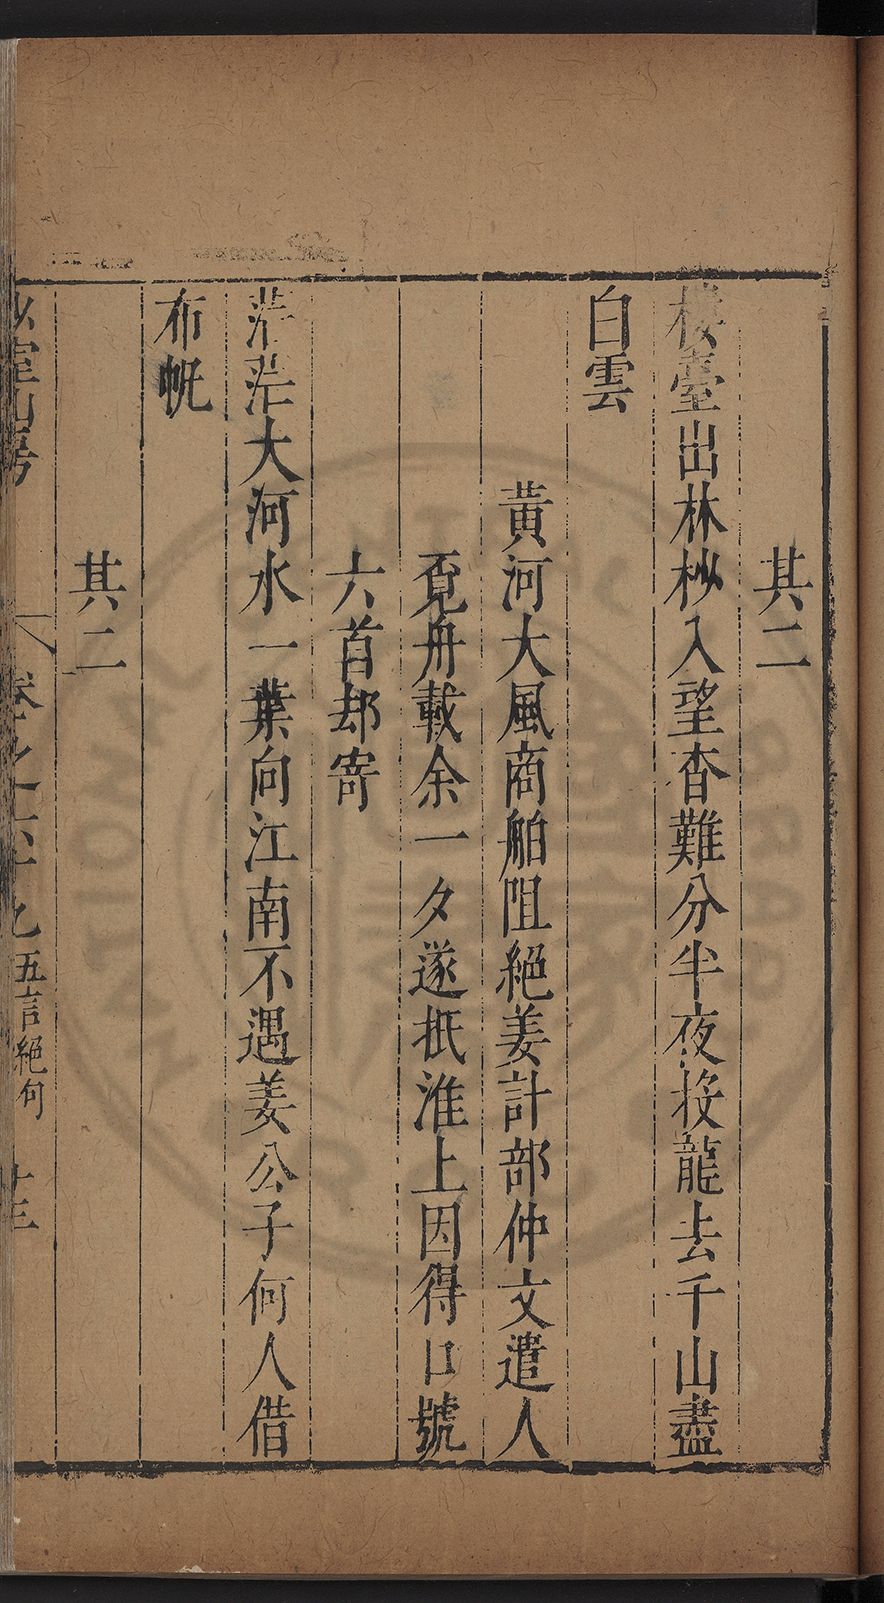 其二
樓臺出林杪入望杳難分半夜投龍去千山盡
白雲
黃河大風商舶阻絕姜計部仲文遣人
覔舟載余一夕遂抵淮上因得口號
六首却寄
茫茫大河水一葉向江南不遇姜公子何人借
布帆
其二
少室山房
卷之六十九 五言絕句 十三